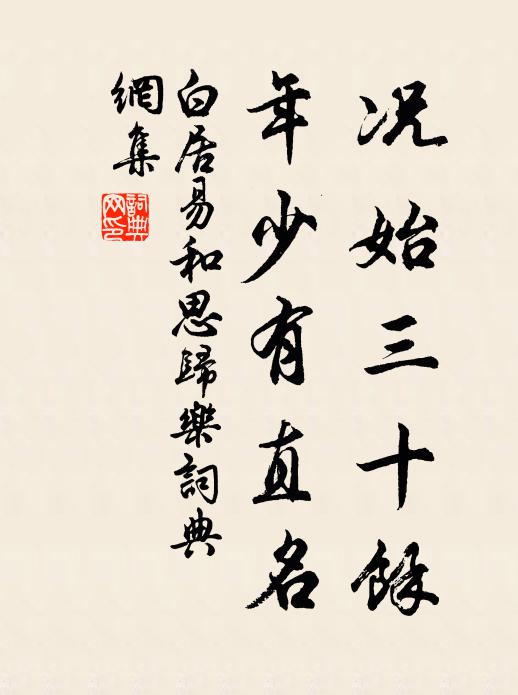 况始三十餘
年少有直名
白居易和思歸樂詞典
網集
詞典網印